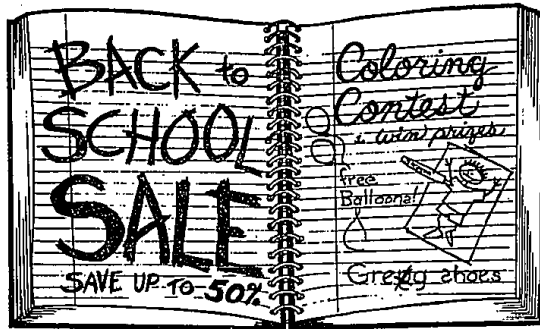 BACK to
SCHOOL
SALE
SAVE UP TO 50%
Coloring
Contest
& win prizes
free
Balloons!
shoes